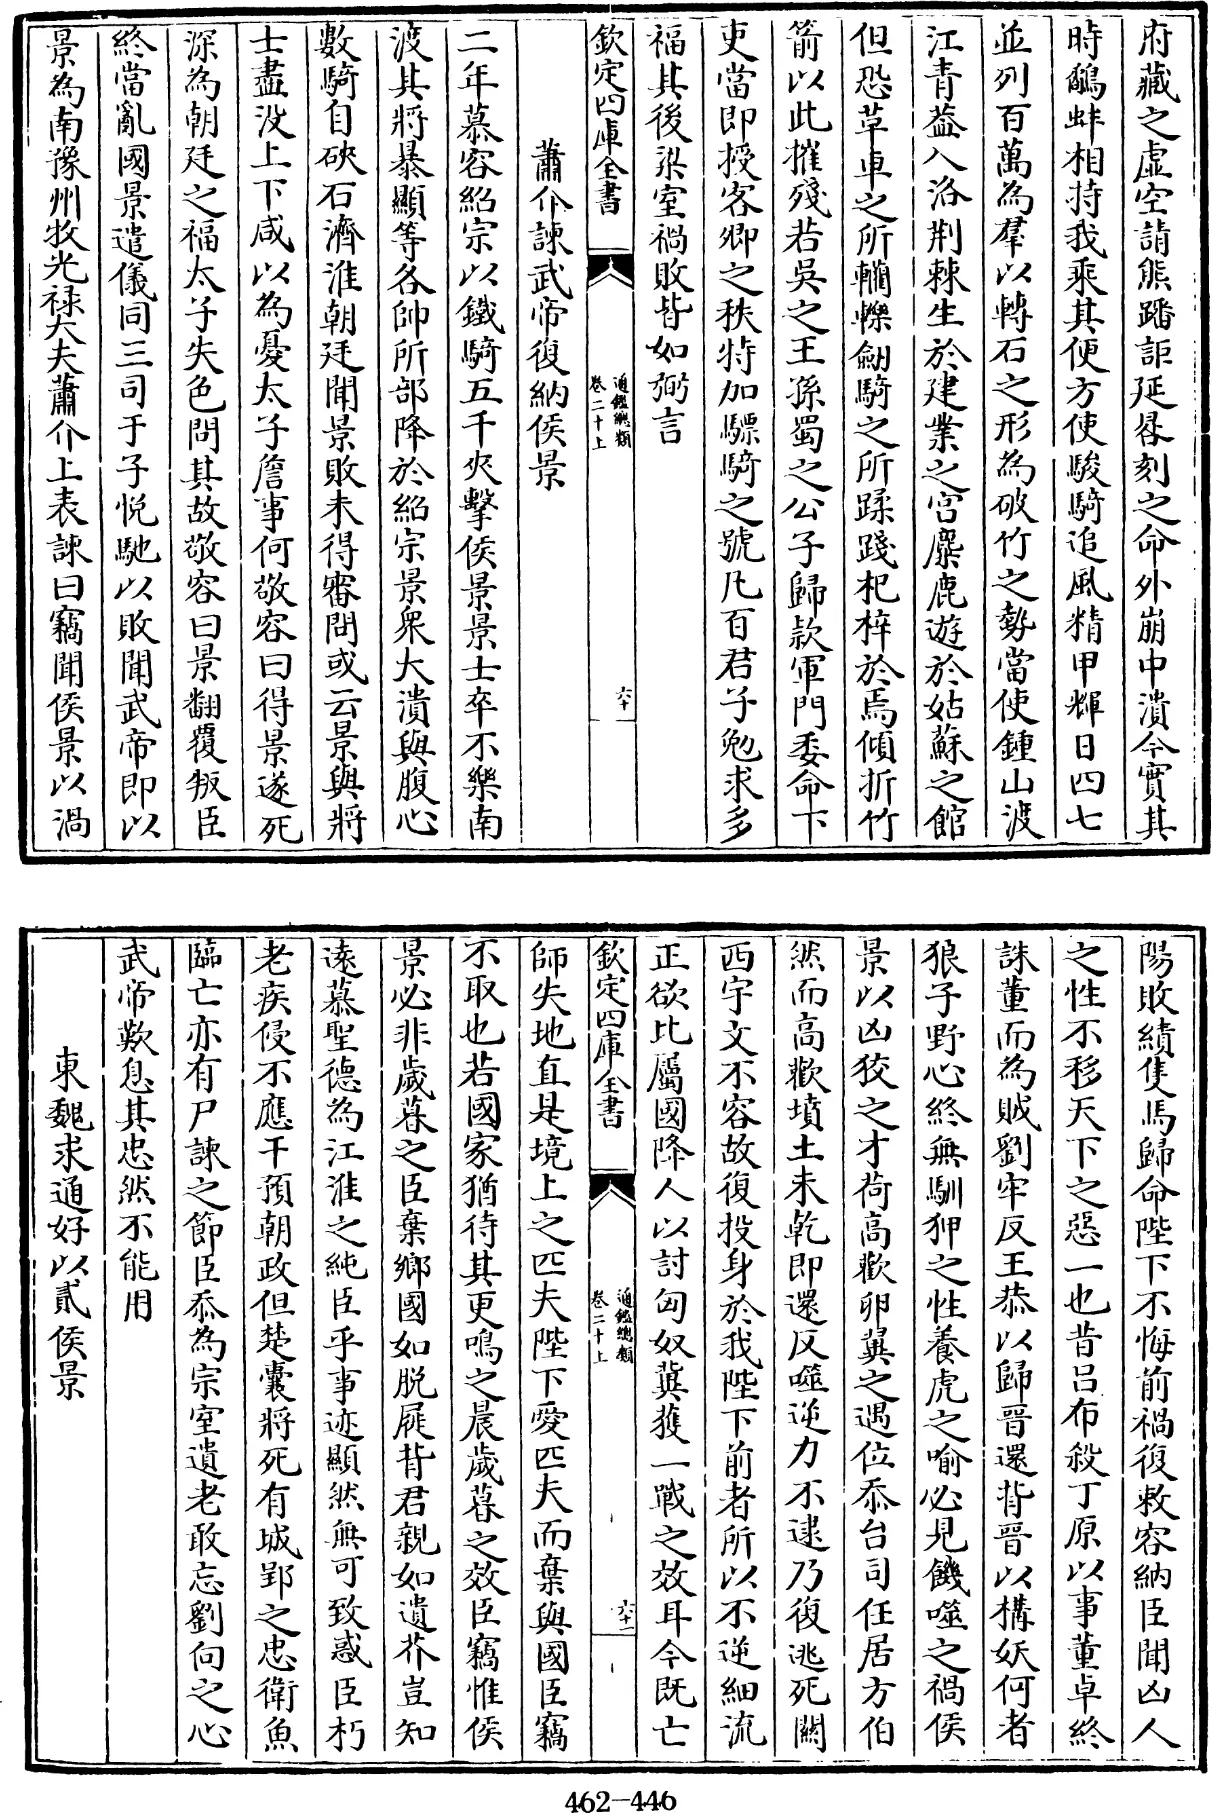 府藏之虛空請熊蹯詎延晷刻之命外崩中潰今實其
時鷸蚌相持我乘其便方使駿騎追風精甲輝日四七
並列百萬為羣以轉石之形為破竹之勢當使鍾山渡
江青蓋入洛荆棘生於建業之宫麋鹿遊於姑蘇之館
但恐革車之所轥轢劒騎之所蹂踐杞梓於焉傾折竹
箭以此摧殘若吳之王孫蜀之公子歸款軍門委命下
吏當即授客卿之秩特加驃騎之號凡百君子勉求多
福其後梁室禍敗皆如弼言
欽定四庫全書
通鑑總類
卷二十上
六十
蕭介諫武帝復納侯景
二年慕容紹宗以鐵騎五千夾擊侯景景士卒不樂南
渡其將暴顯等各帥所部降於紹宗景衆大潰與腹心
數騎自硤石濟淮朝廷聞景敗未得審問或云景與將
士盡沒上下咸以為憂太子詹事何敬容曰得景遂死
深為朝廷之福太子失色問其故敬容曰景翻覆叛臣
終當亂國景遣儀同三司于子悅馳以敗聞武帝即以
景為南豫州牧光禄大夫蕭介上表諫曰竊聞侯景以渦
陽敗績隻馬歸命陛下不悔前禍復敕容納臣聞凶人
之性不移天下之惡一也昔吕布殺丁原以事董卓終
誅董而為賊劉牢反王恭以歸晉還背晉以構妖何者
狼子野心終無馴狎之性養虎之喻必見饑噬之禍侯
景以凶狡之才荷高歡卵翼之遇位忝台司任居方伯
然而高歡墳土未乾即還反噬逆力不逮乃復逃死關
西宇文不容故復投身於我陛下前者所以不逆細流
正欲比屬國降人以討匈奴冀獲一戰之效耳今既亡
欽定四庫全書
通鑑總類
卷二十上
六十一
師失地直是境上之匹夫陛下愛匹夫而棄與國臣竊
不取也若國家猶待其更鳴之晨歲暮之效臣竊惟侯
景必非歲暮之臣棄鄉國如脱屣背君親如遺芥豈知
遠慕聖德為江淮之純臣乎事迹顯然無可致惑臣朽
老疾侵不應干預朝政但楚囊將死有城郢之忠衛魚
臨亡亦有尸諫之節臣忝為宗室遺老敢忘劉向之心
武帝歎息其忠然不能用
東魏求通好以貳侯景
462-446